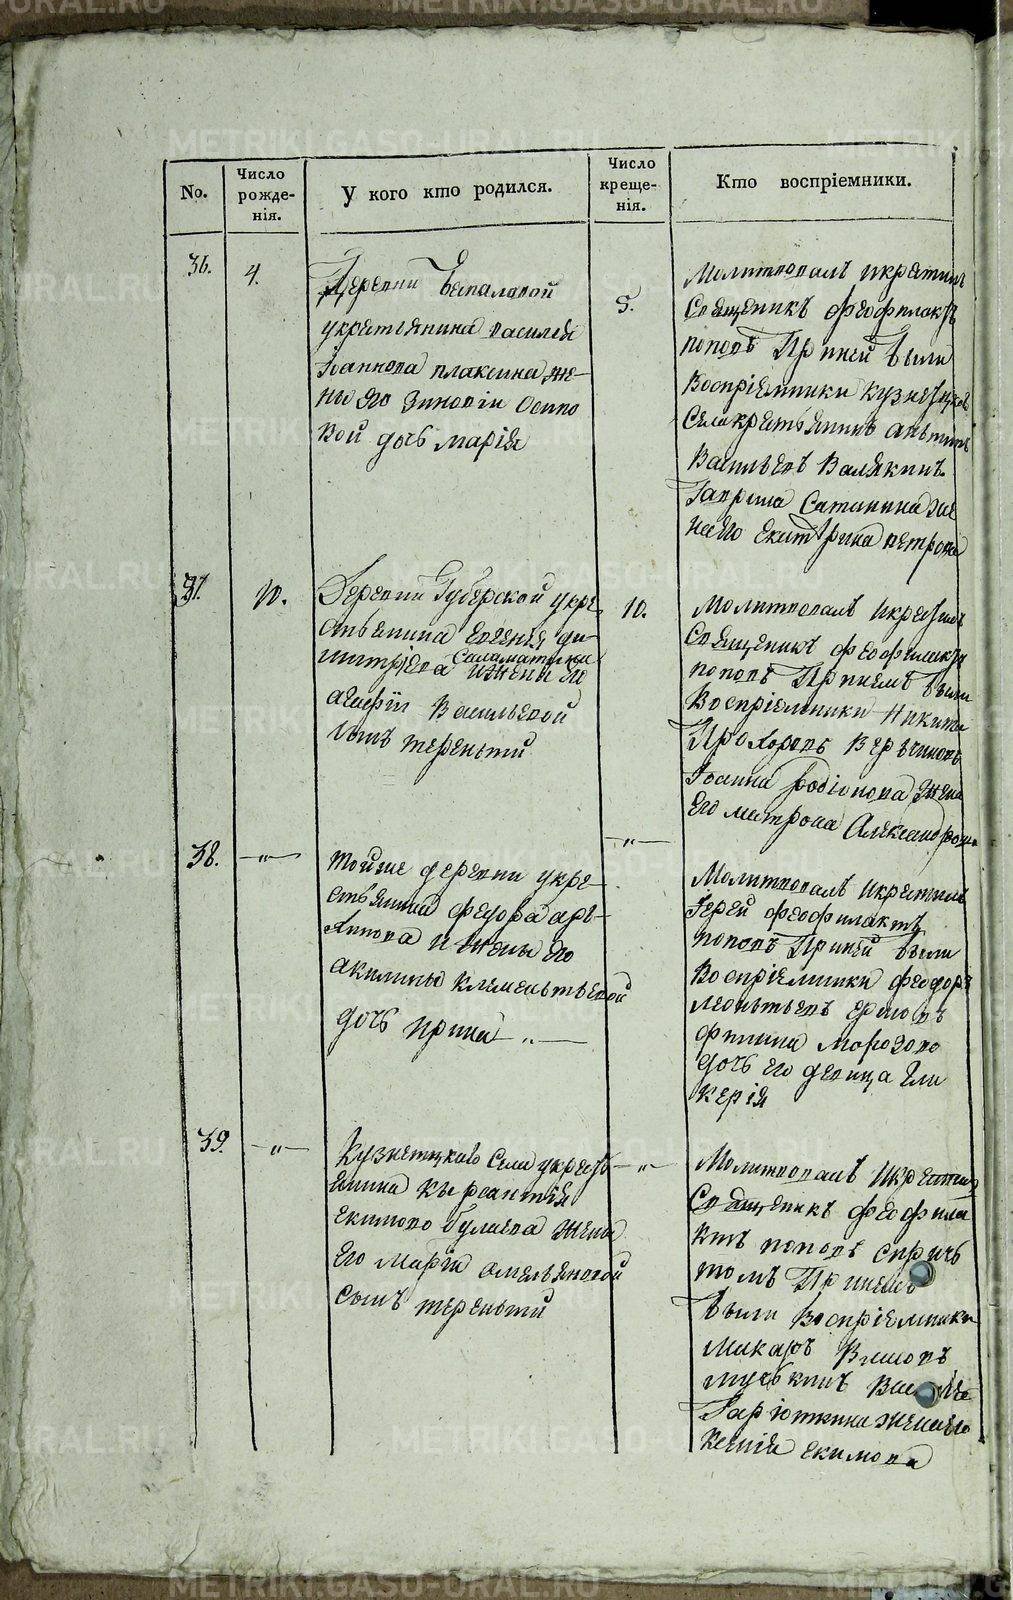 No.
Число рожде-нія.
У кого кто родился.
Число креще-нія.
Кто воспріемники.
36.
4.
Деревни Беспаловой
укрестьянина василья
Іоаннова плаксина же-
ны его Зиновіи Осипо
вой дочь марія
5.
Молитвовалъ икрестилъ
Священникъ феофилактъ
поповъ Приней были
Воспріемники кузнецкого
Села крестьянинъ антипъ
Васильевъ Валякинъ
Гаврила Сатинина же
на его екатерина петрова
37.
10.
Деревни Губерской укре
стьянина евгения ди
митріева Саламатина ижены его
агафіи Васильевой
сынъ терентий
10.
Молитвовалъ икрестилъ
Священникъ феофилактъ
поповъ Принемъ были
Воспріемники Никита
Прохоровъ
Іоанна Родіонова жена
его матрона Александрова
38.
—"—
тойже деревни укре-
стьянина федора
и жены его
акилины климентьевой
дочь ирина —"—
—"—
Молитвовалъ икрестилъ
Іерей феофилактъ
поповъ Приней были
Воспріемники феодоръ
леонтьевъ
филипа морозова
дочь его девица гли
керія
39.
—"—
Кузнецкаго Села укресть
янина
екимова булаева жена
его марія емельяновой
сынъ терентий
—"—
Молитвовалъ икрестилъ
Священникъ феофила
ктъ поповъ спричь
томъ Принемъ
были воспріемники
макаръ
Васильева
жена его
ксенія екимова